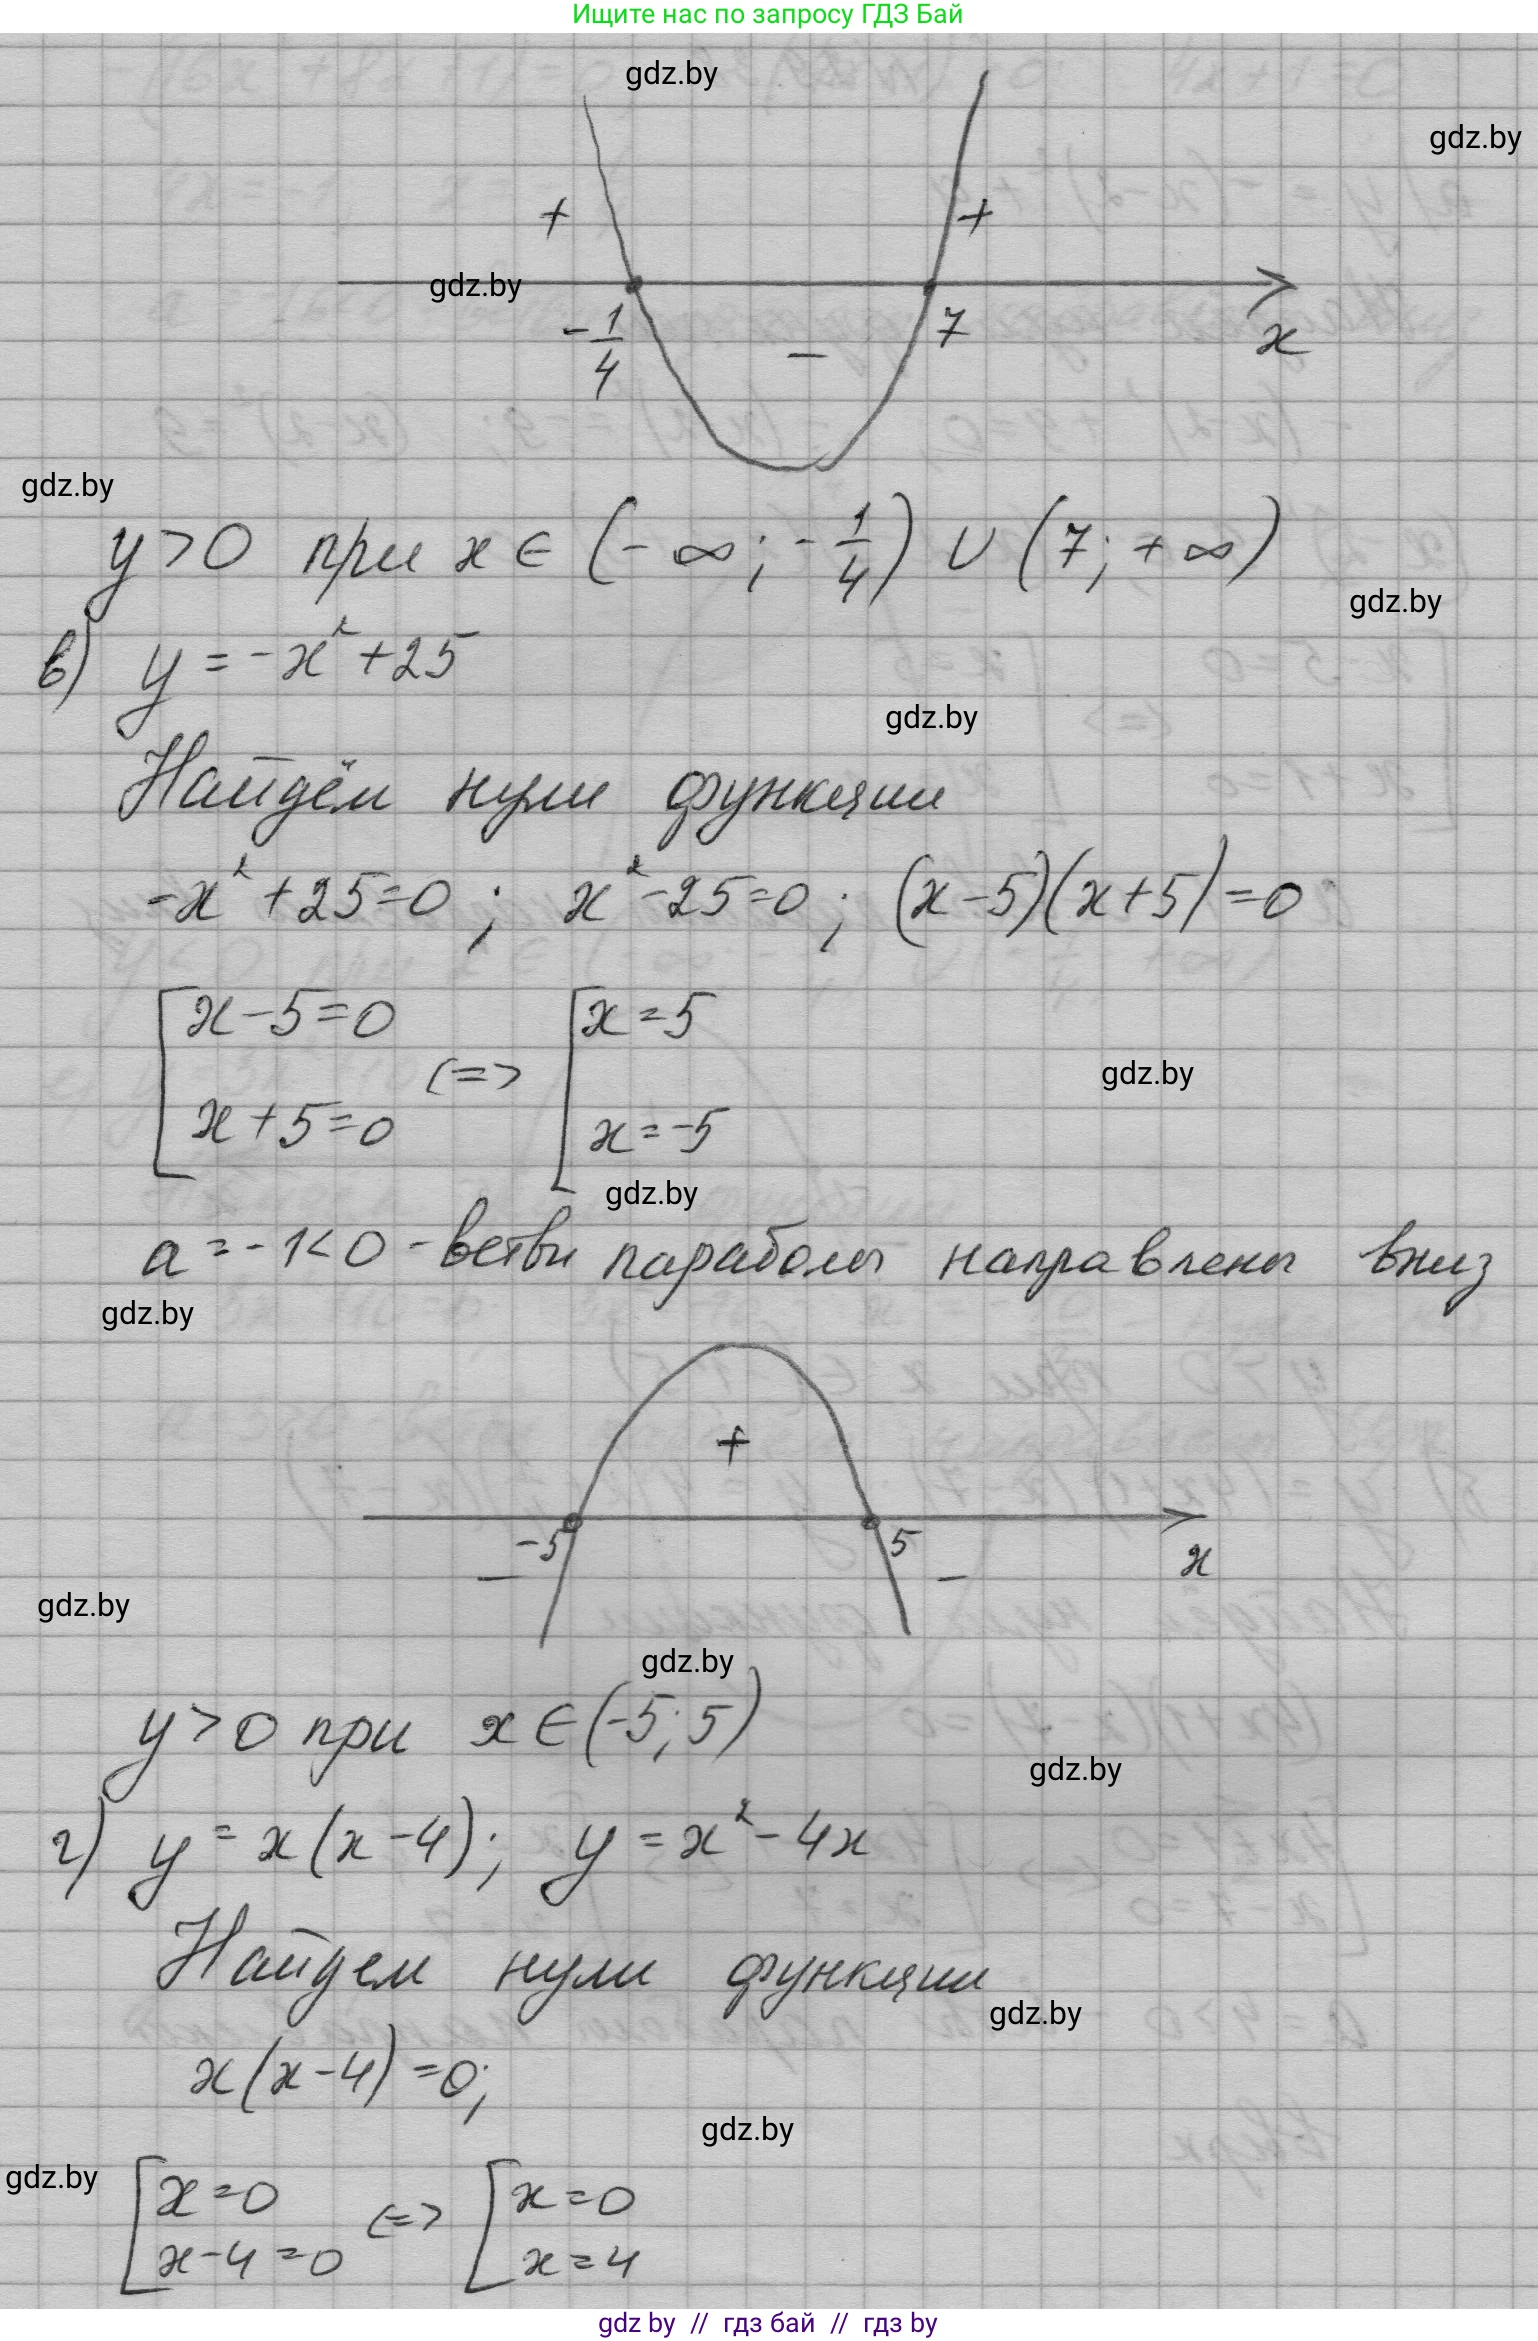 Ищите нас по запросу ГДЗ Бай
gdz.by
gdz.by
+ +
gdz.by
-1/4 - 7 x
gdz.by
y>0 при x ∈ (-∞; -1/4) ∪ (7; +∞)
gdz.by
в) y = -x² + 25
gdz.by
Найдём нули функции
-x² + 25 = 0; x² - 25 = 0; (x-5)(x+5) = 0
[x-5=0 [x=5
<=>
gdz.by
x+5=0 x=-5
gdz.by
a = -1 < 0 - ветви параболы направлены вниз
gdz.by
+
-5 5 x
- -
gdz.by
gdz.by
y>0 при x ∈ (-5; 5)
gdz.by
г) y = x(x-4); y = x² - 4x
Найдем нули функции
gdz.by
x(x-4) = 0;
gdz.by
gdz.by
[x=0 <=> [x=0
x-4=0 x=4
gdz by // гдз бай // гдз by